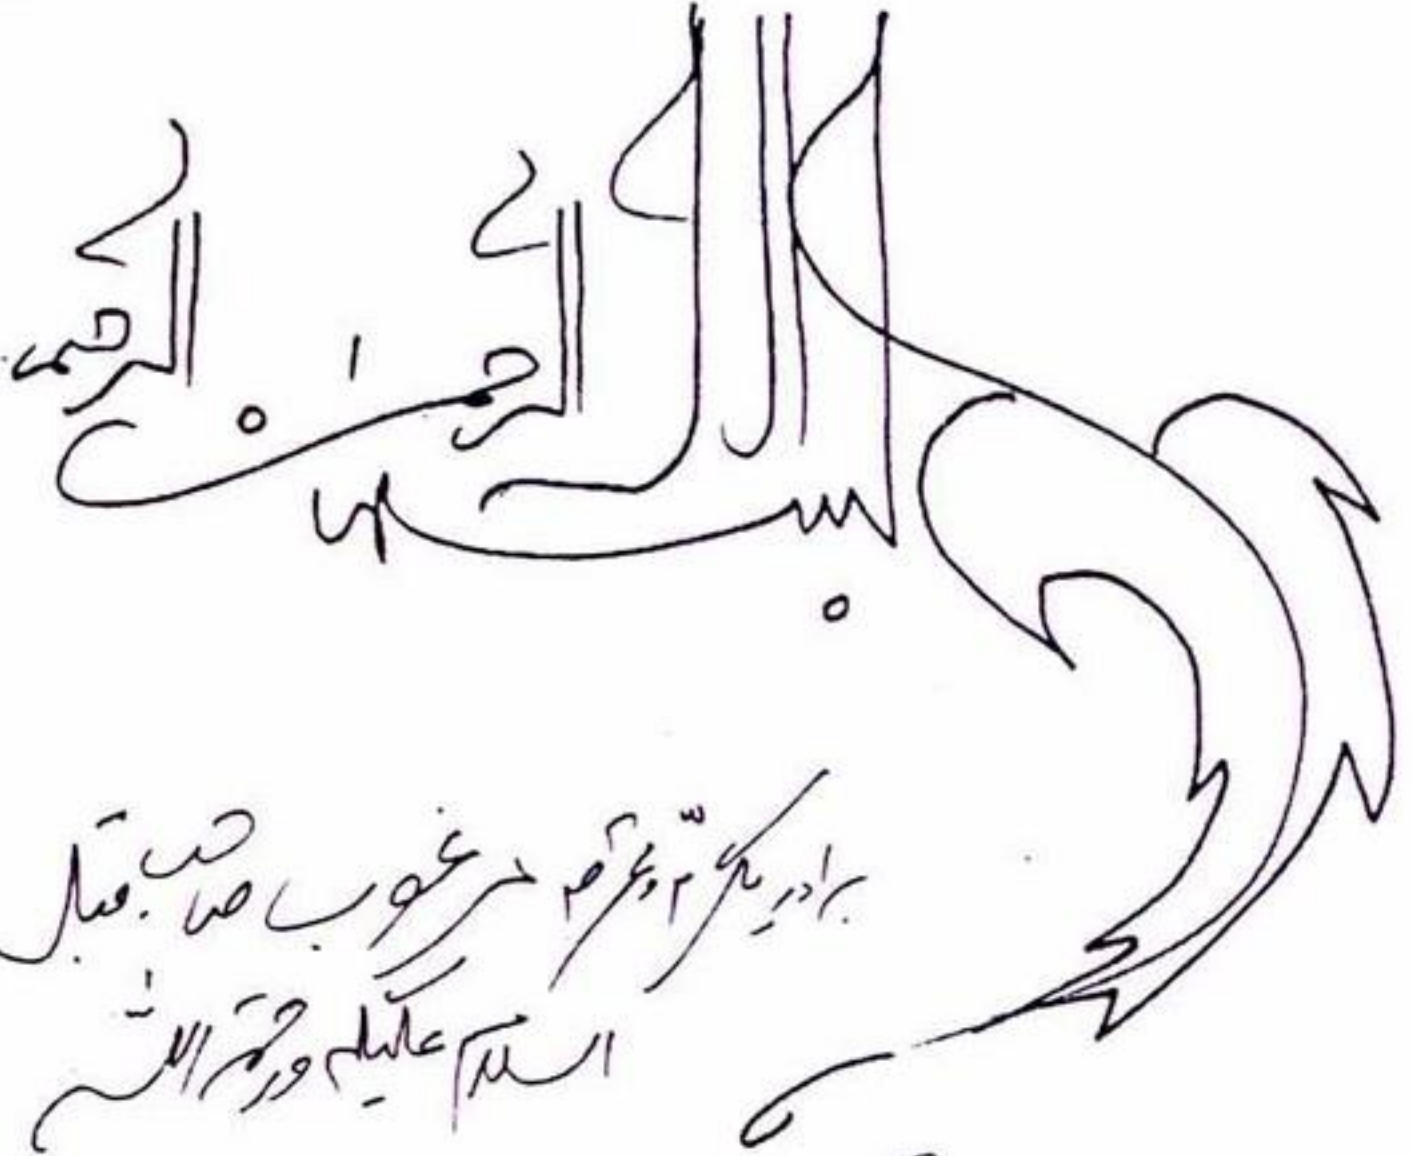 بسم اللہ الرحمٰن الرحیم
برادرِ مکرّم و محترم مرغوب صاحب قبلہ
السلام علیکم ورحمۃ اللہ